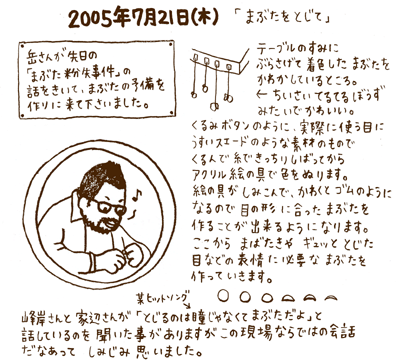 2005年7月21日(木) 「まぶたをとじて」
岳さんが先日の
「まぶた粉失事件」の
話をきいて、まぶたの予備を
作りに来て下さいました。
テーブルのすみに
ぶらさげて着色したまぶたを
かわかしているところ。
←ちいさいてるてるぼうず
みたいでかわいい。
くるみボタンのように、実際に使う目に
うすいスエードのような素材のもので
くるんで糸できっちりしばってから
アクリル絵の具で色をぬります。
絵の具がしみこんで、かわくとゴムのように
なるので目の形に合ったまぶたを
作ることが出来るようになります。
ここからまばたきやギュッととじた
目などの表情に必要なまぶたを
作っていきます。
某ヒットソング
峰岸さんと家辺さんが「とじるのは瞳じゃなくてまぶただよ」と
話しているのを聞いた事がありますがこの現場ならではの会話
だなあってしみじみ思いました。